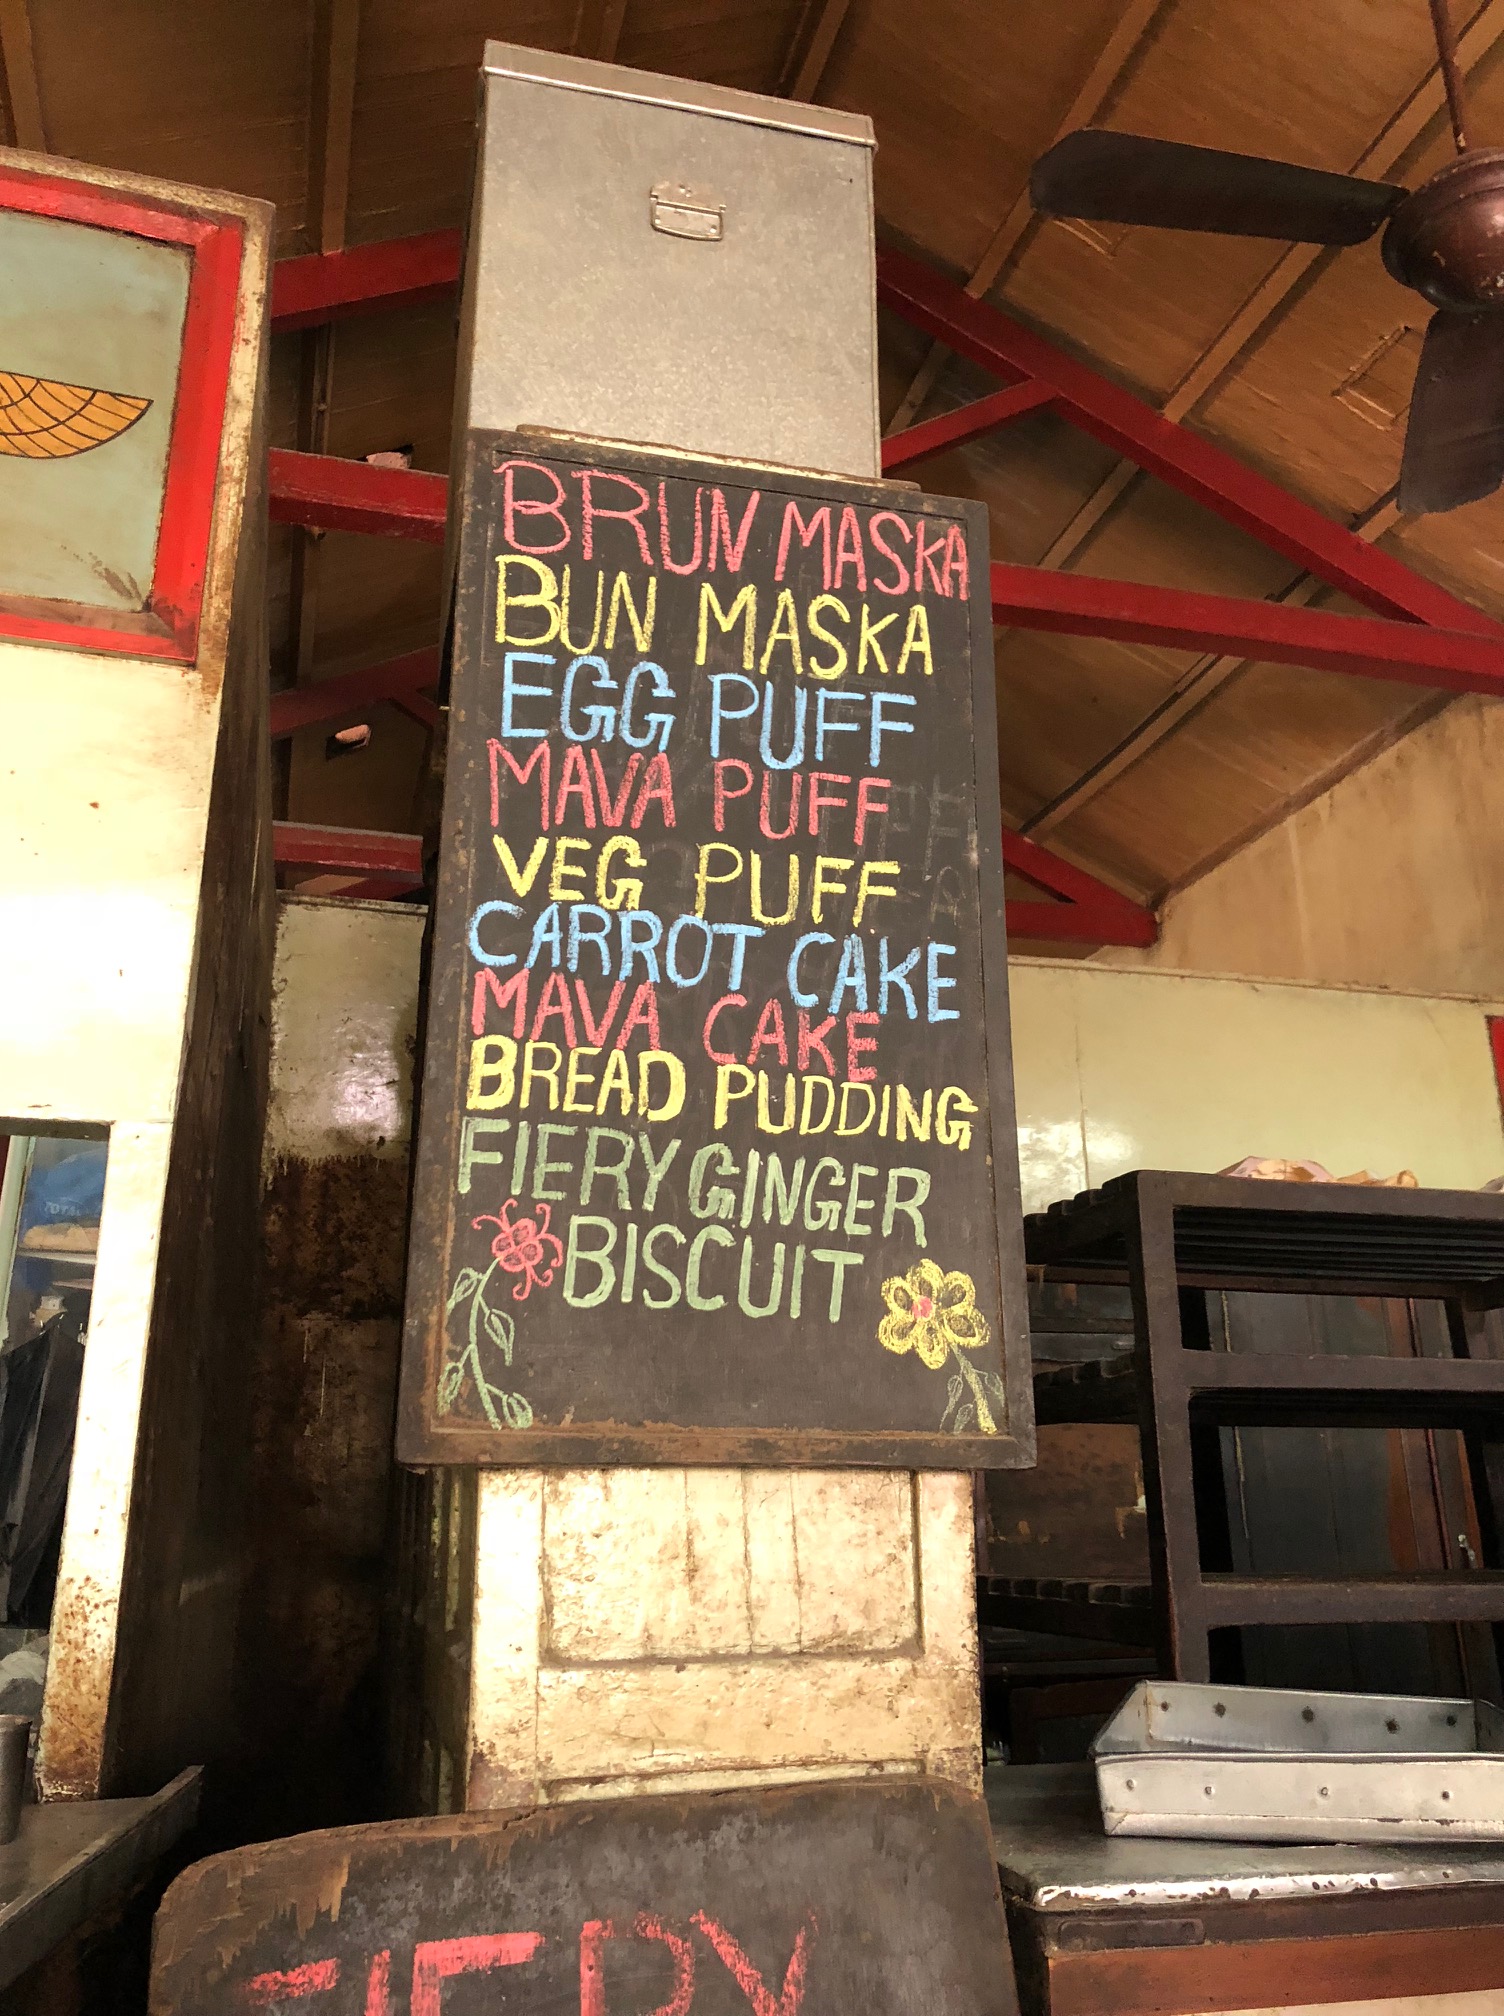 BRUN MASKA
BUN MASKA
EGG PUFF
MAVA PUFF
VEG PUFF
CARROT CAKE
MAVA CAKE
BREAD PUDDING
FIERY GINGER
BISCUIT
FIERY